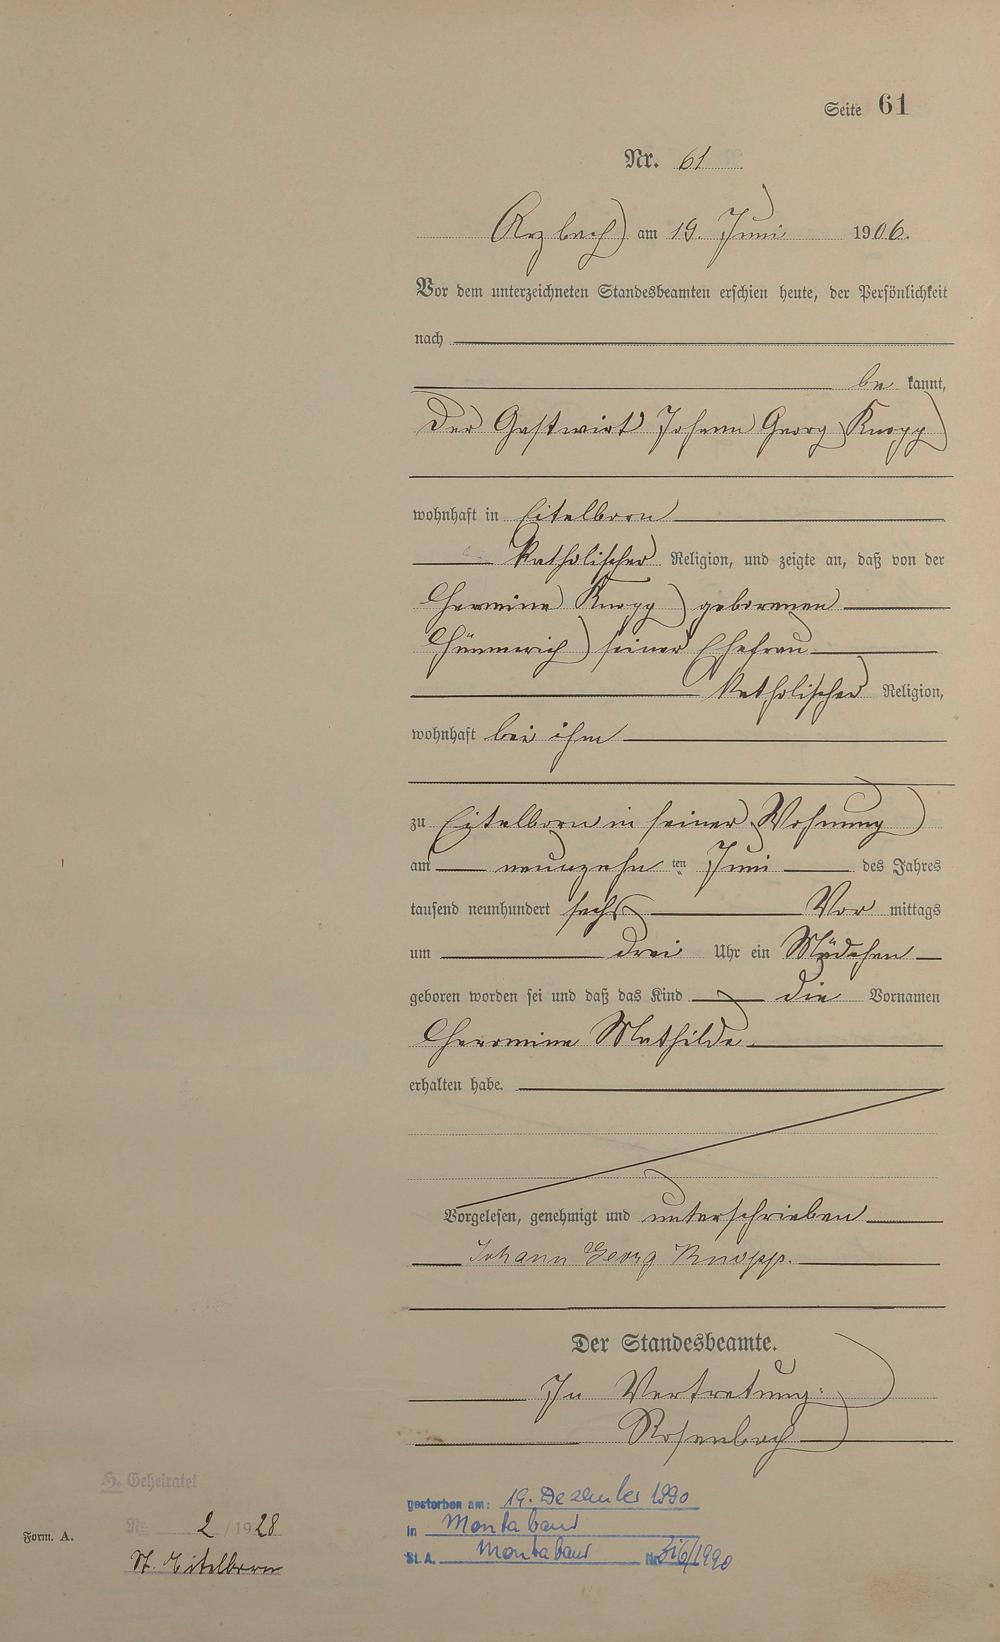 Seite 61
Nr. 61
Arzbach am 19. Juni 1906.
Vor dem unterzeichneten Standesbeamten erschien heute, der Persönlichkeit
nach
be kannt,
der Gastwirt Johann Georg Knopp
wohnhaft in Eitelborn
katholischer Religion, und zeigte an, daß von der
Hermine Knopp geborenen
Hümmerich seiner Ehefrau
katholischer Religion,
wohnhaft bei ihm
zu Eitelborn in seiner Wohnung
am neunzehn ten Juni des Jahres
tausend neunhundert sechs Vor mittags
um drei Uhr ein Mädchen
geboren worden sei und daß das Kind die Vornamen
Hermine Mathilde
erhalten habe.
Vorgelesen, genehmigt und unterschrieben
Johann Georg Knopp.
Der Standesbeamte.
In Vertretung:
Rosenbach
H. Geheiratet
Nr. 2 / 1928
St. Eitelborn
Form. A.
gestorben am: 19. Dezember 1990
in Montabaur
St. A. Montabaur Nr. 316/1990